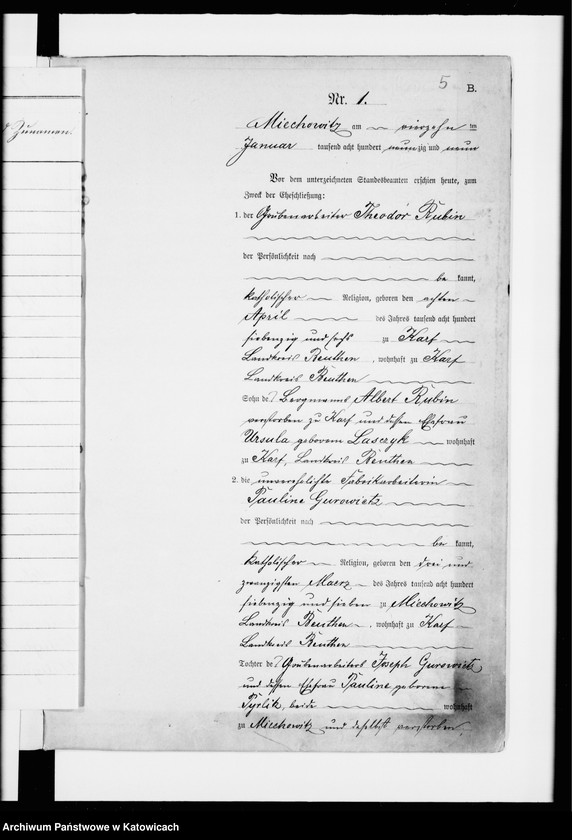 5
B.
Nr. 1.
Zunamen.
Miechowitz am vierzehn ten
Januar tausend acht hundert neunzig und neun
Vor dem unterzeichneten Standesbeamten erschien heute, zum
Zweck der Eheschließung:
1. der Grubenarbeiter Theodor Rubin
der Persönlichkeit nach
be kannt,
katholischer Religion, geboren den achten
April des Jahres tausend acht hundert
siebenzig und sechs zu Karf
Landkreis Beuthen, wohnhaft zu Karf
Landkreis Beuthen
Sohn des Bergmanns Albert Rubin
verstorben zu Karf und dessen Ehefrau
Ursula geborenen Lasczyk wohnhaft
zu Karf, Landkreis Beuthen
2. die unverehelichte Fabrikarbeiterin
Pauline Gurowietz
der Persönlichkeit nach
be kannt,
katholischer Religion, geboren den drei und
zwanzigsten Maerz des Jahres tausend acht hundert
siebenzig und sieben zu Miechowitz
Landkreis Beuthen, wohnhaft zu Karf
Landkreis Beuthen
Tochter des Grubenarbeiters Joseph Gurowietz
und dessen Ehefrau Pauline geborene
Pyrlik, beide wohnhaft
zu Miechowitz und daselbst verstorben.
Archiwum Państwowe w Katowicach